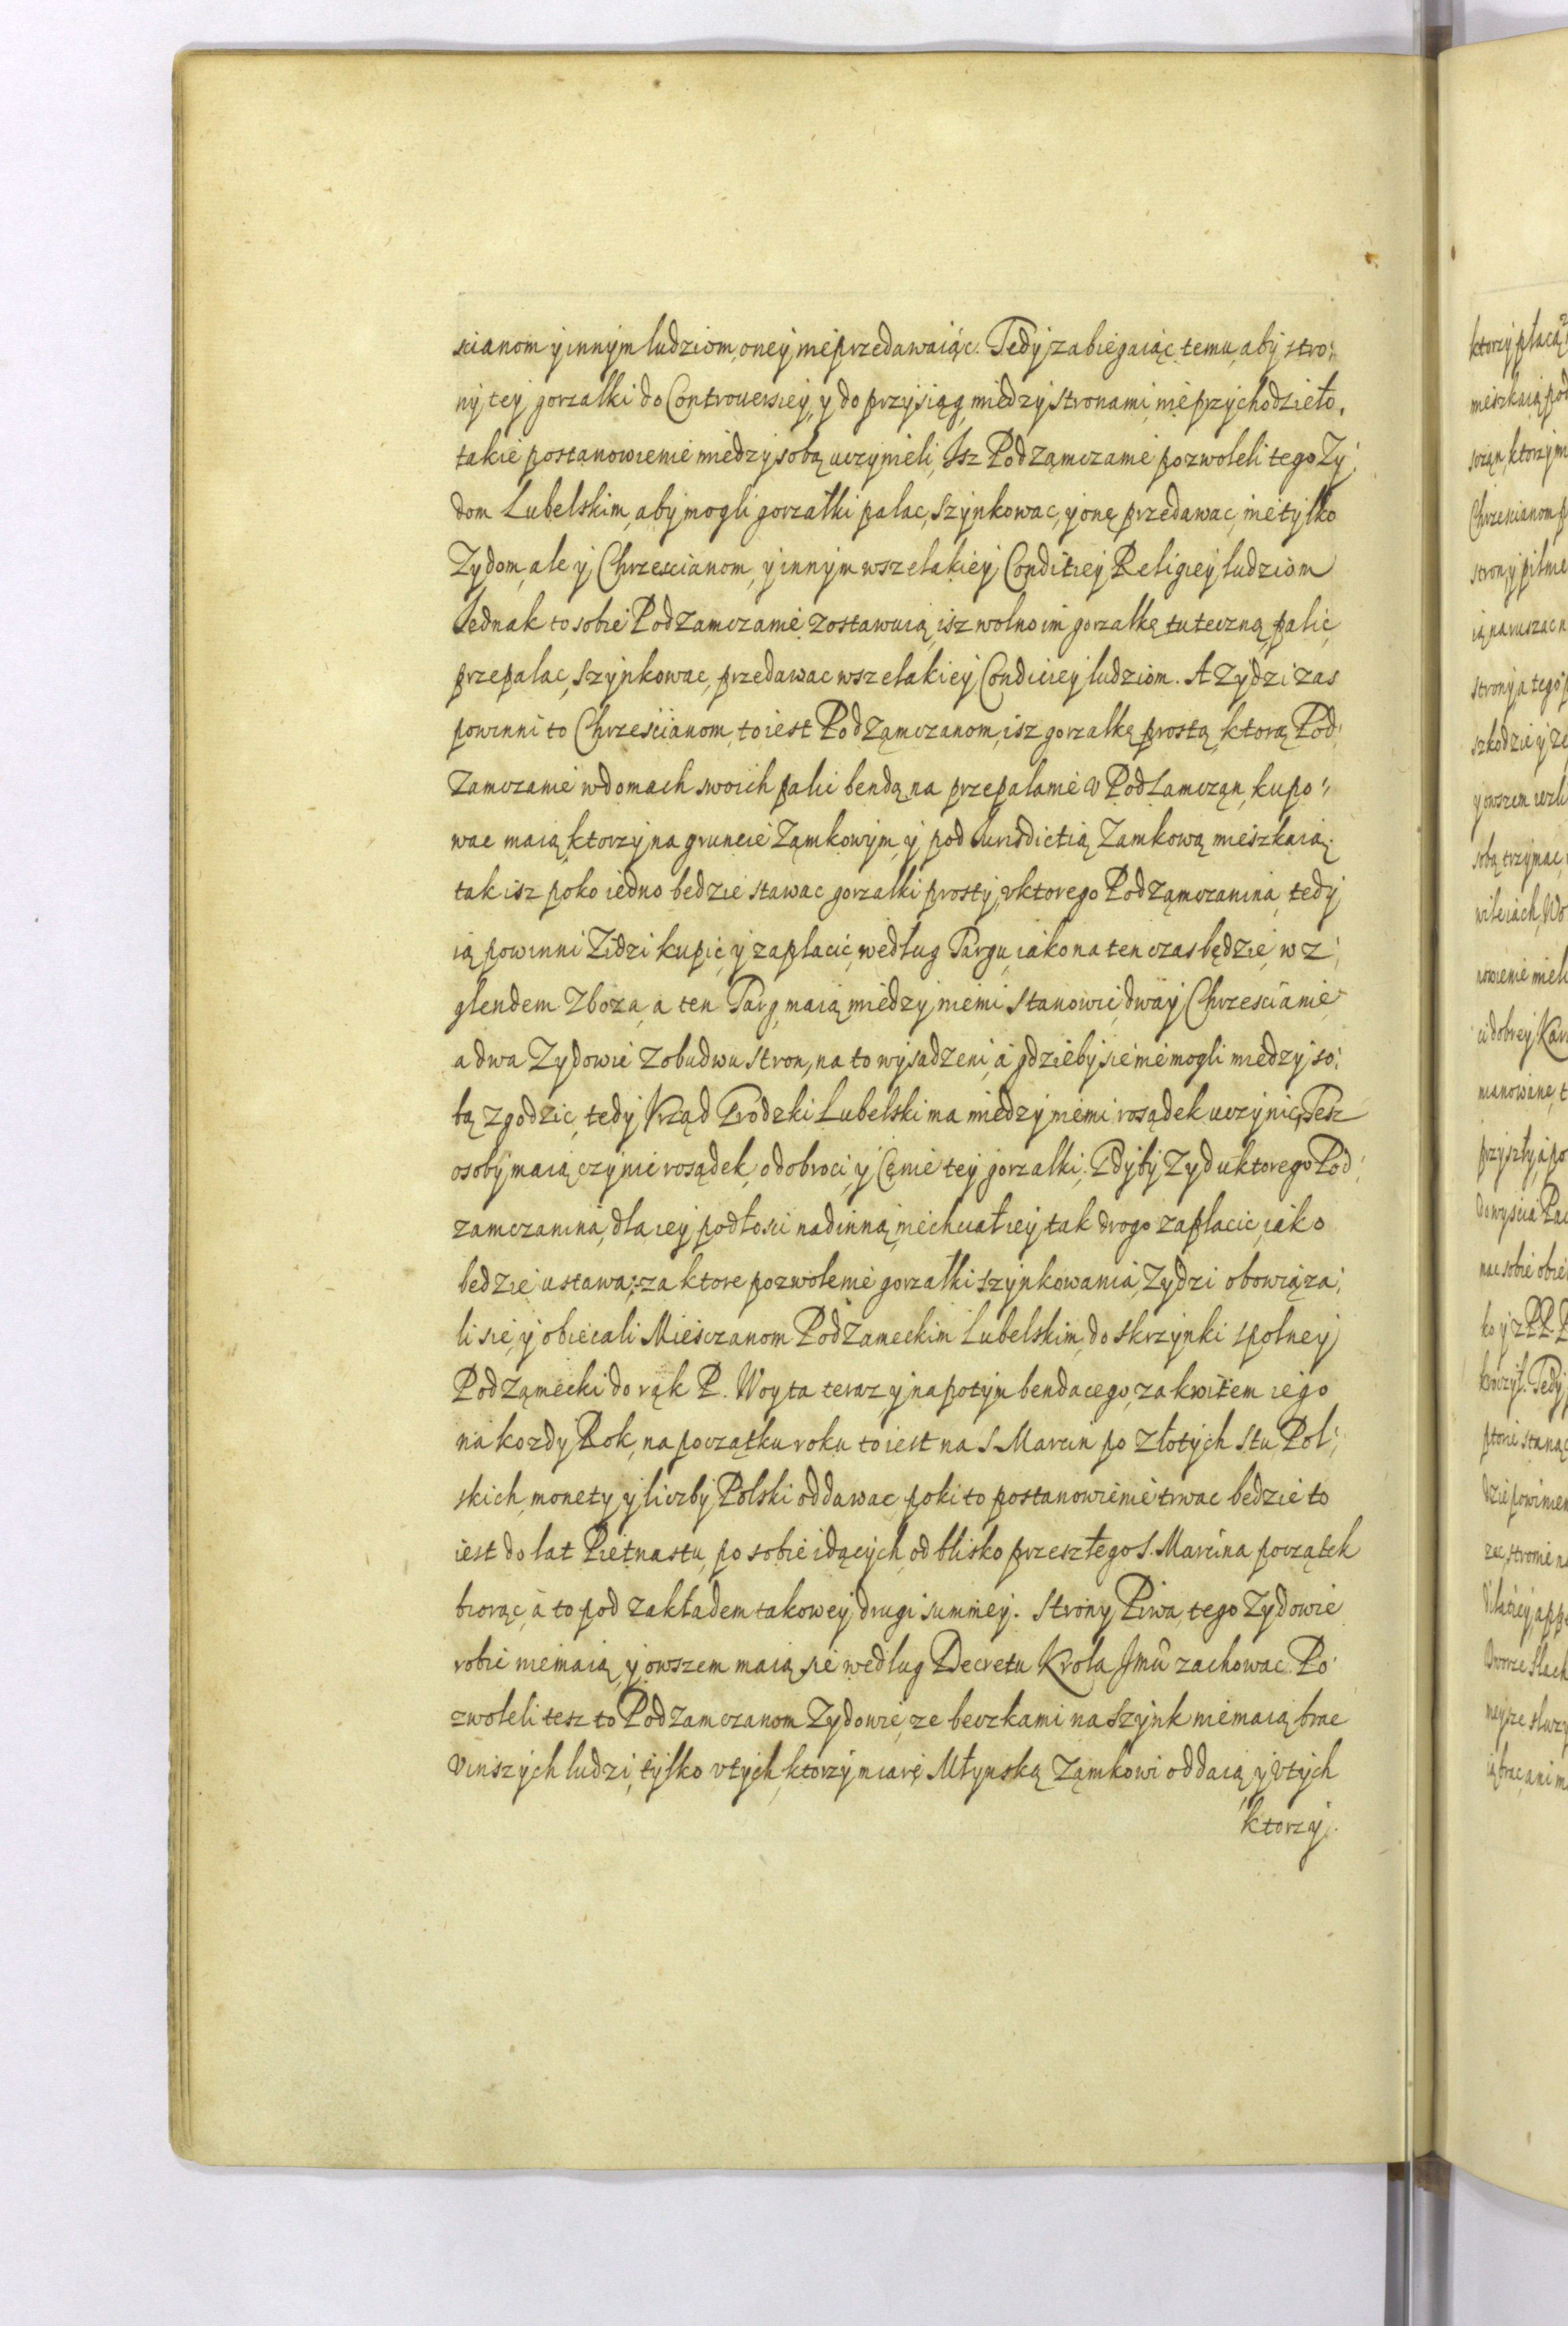 scianom y innym ludziom, oney nieprzedawaiąc. Tedy zabiegaiąc temu, aby stro:
ny tey gorzałki do Controuersiey, y do przysiąg, miedzy stronami nieprzychodzieło,
takie postanowienie miedzy sobą uczynieli, Isz Podzamczanie pozwoleli tego Zy:
dom Lubelskim, aby mogli gorzałki palac, szynkowac, y onę przedawac, nietylko
Zydom, ale y Chrzescianom, y innym wszelakiey Conditiey Religiey ludziom
Iednak to sobie Podzamczanie zostawuią, isz wolno im gorzałkę tuteczną, palic,
przepalac, szynkowac, przedawac wszelakiey Condiciey ludziom. A Zydzi zas
powinni to Chrzescianom, to iest Podzamczanom, isz gorzałkę prostą, ktorą Pod:
zamczanie w domach swoich palic bendą na przepalanie v Podzamczan, kupo:
wac maią, ktorzy na gruncie Zamkowym, y pod Iurisdictią Zamkową mieszkaią.
tak isz poko iedno bedzie stawac gorzałki prosty, v ktorego Podzamczanina, tedy
ią powinni Zidzi kupic, y zapłacic, według Targu, iako na ten czas będzie, wz:
glendem zboza, a ten Targ maią miedzy niemi stanowic, dway Chrzescianie
a dwa Zydowie z obudwu stron, na to wysadzeni, a gdzieby sie nie mogli miedzy so:
bą zgodzic, tedy Vrząd Grodzki Lubelski ma miedzy niemi rosądek uczynic, Tesz
osoby maią czynic rosądek, o dobroci, y Cenie tey gorzałki, Gdyby Zyd u ktorego Pod:
zamczanina, dla iey podłosci nad inną, niechciał iey tak drogo zapłacic, iako
bedzie ustawa; za ktore pozwolenie gorzałki szynkowania, Zydzi obowiąza:
li sie, y obiecali Miesczanom Podzameckim Lubelskim, do skrzynki spolney
Podzamecki do rąk P. Woyta teraz, y napotym bendacego, za kwitem iego
na kozdy Rok, na początku roku to iest na S. Marcin po złotych stu Pol:
skich, monety, y liczby Polski oddawac, poki to postanowienie trwac bedzie to
iest do lat Pietnastu, po sobie idących, od blisko przeszłego S. Marcina początek
biorąc, a to pod zakładem takowey drugi summey. Strony Piwa, tego Zydowie
robic niemaią, y owszem maią sie według Decretu Krola Jmci zachowac. Po:
zwoleli tesz to Podzamczanom Zydowie, ze beczkami na szynk niemaią brac
v inszych ludzi, tylko v tych, ktorzy miarę Młynską Zamkowi oddaią, y v tych
ktorzy.